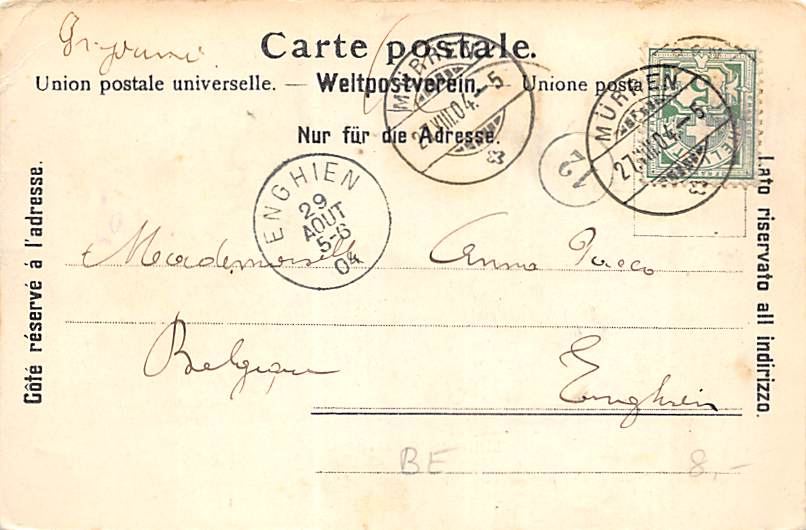 Carte postale.
Union postale universelle. — Weltpostverein. — Unione posta
Nur für die Adresse.
MÜRREN
27.VIII.04.-5
MÜRREN
27.VIII.04.-5
12
ENGHIEN
29
AOUT
5-6
04
Côté réservé á l'adresse.
Lato riservato all indirizzo.
Mademoiselle Anna
Belgique
Enghien
BE 8,-